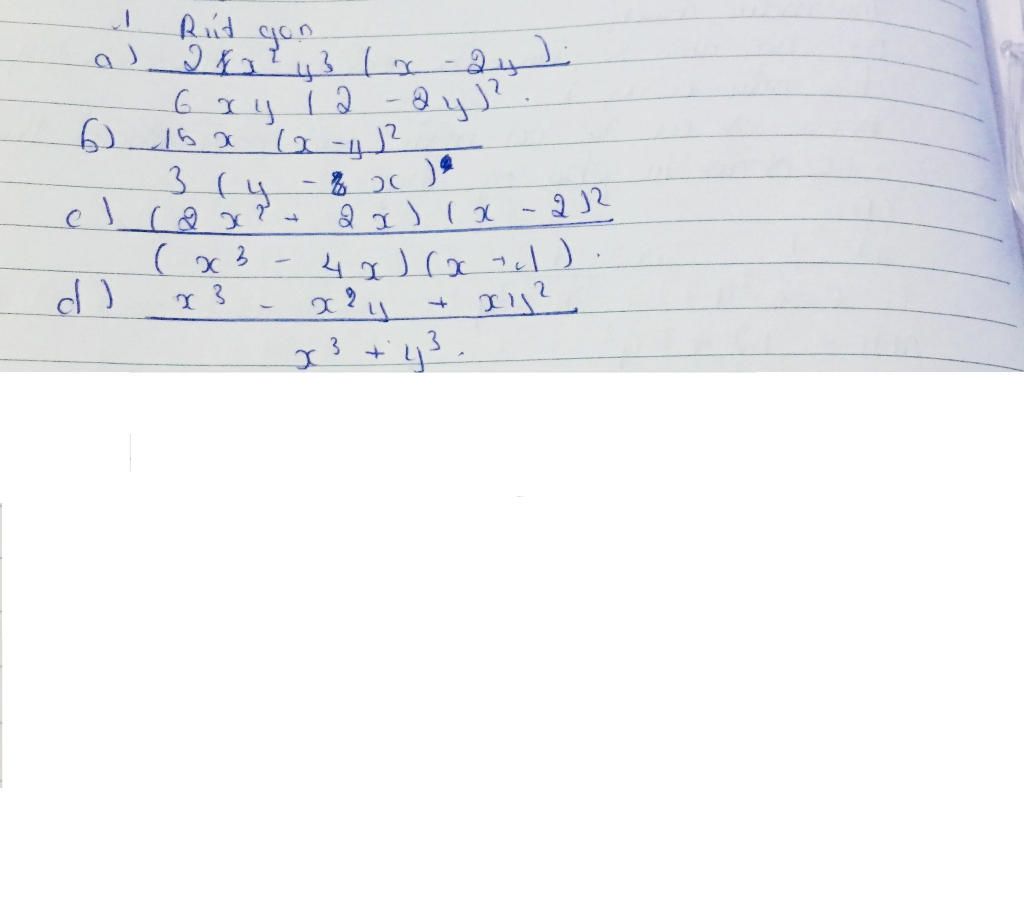 1 Rút gọn
a) 21x²y³(x - 2y).
6xy(2 - 2y)².
b) 15x (x - y)²
3(y - x)
c) (2x² + 2x)(x - 2)²
(x³ - 4x)(x + 1).
d) x³ - x²y + xy²
x³ + y³.